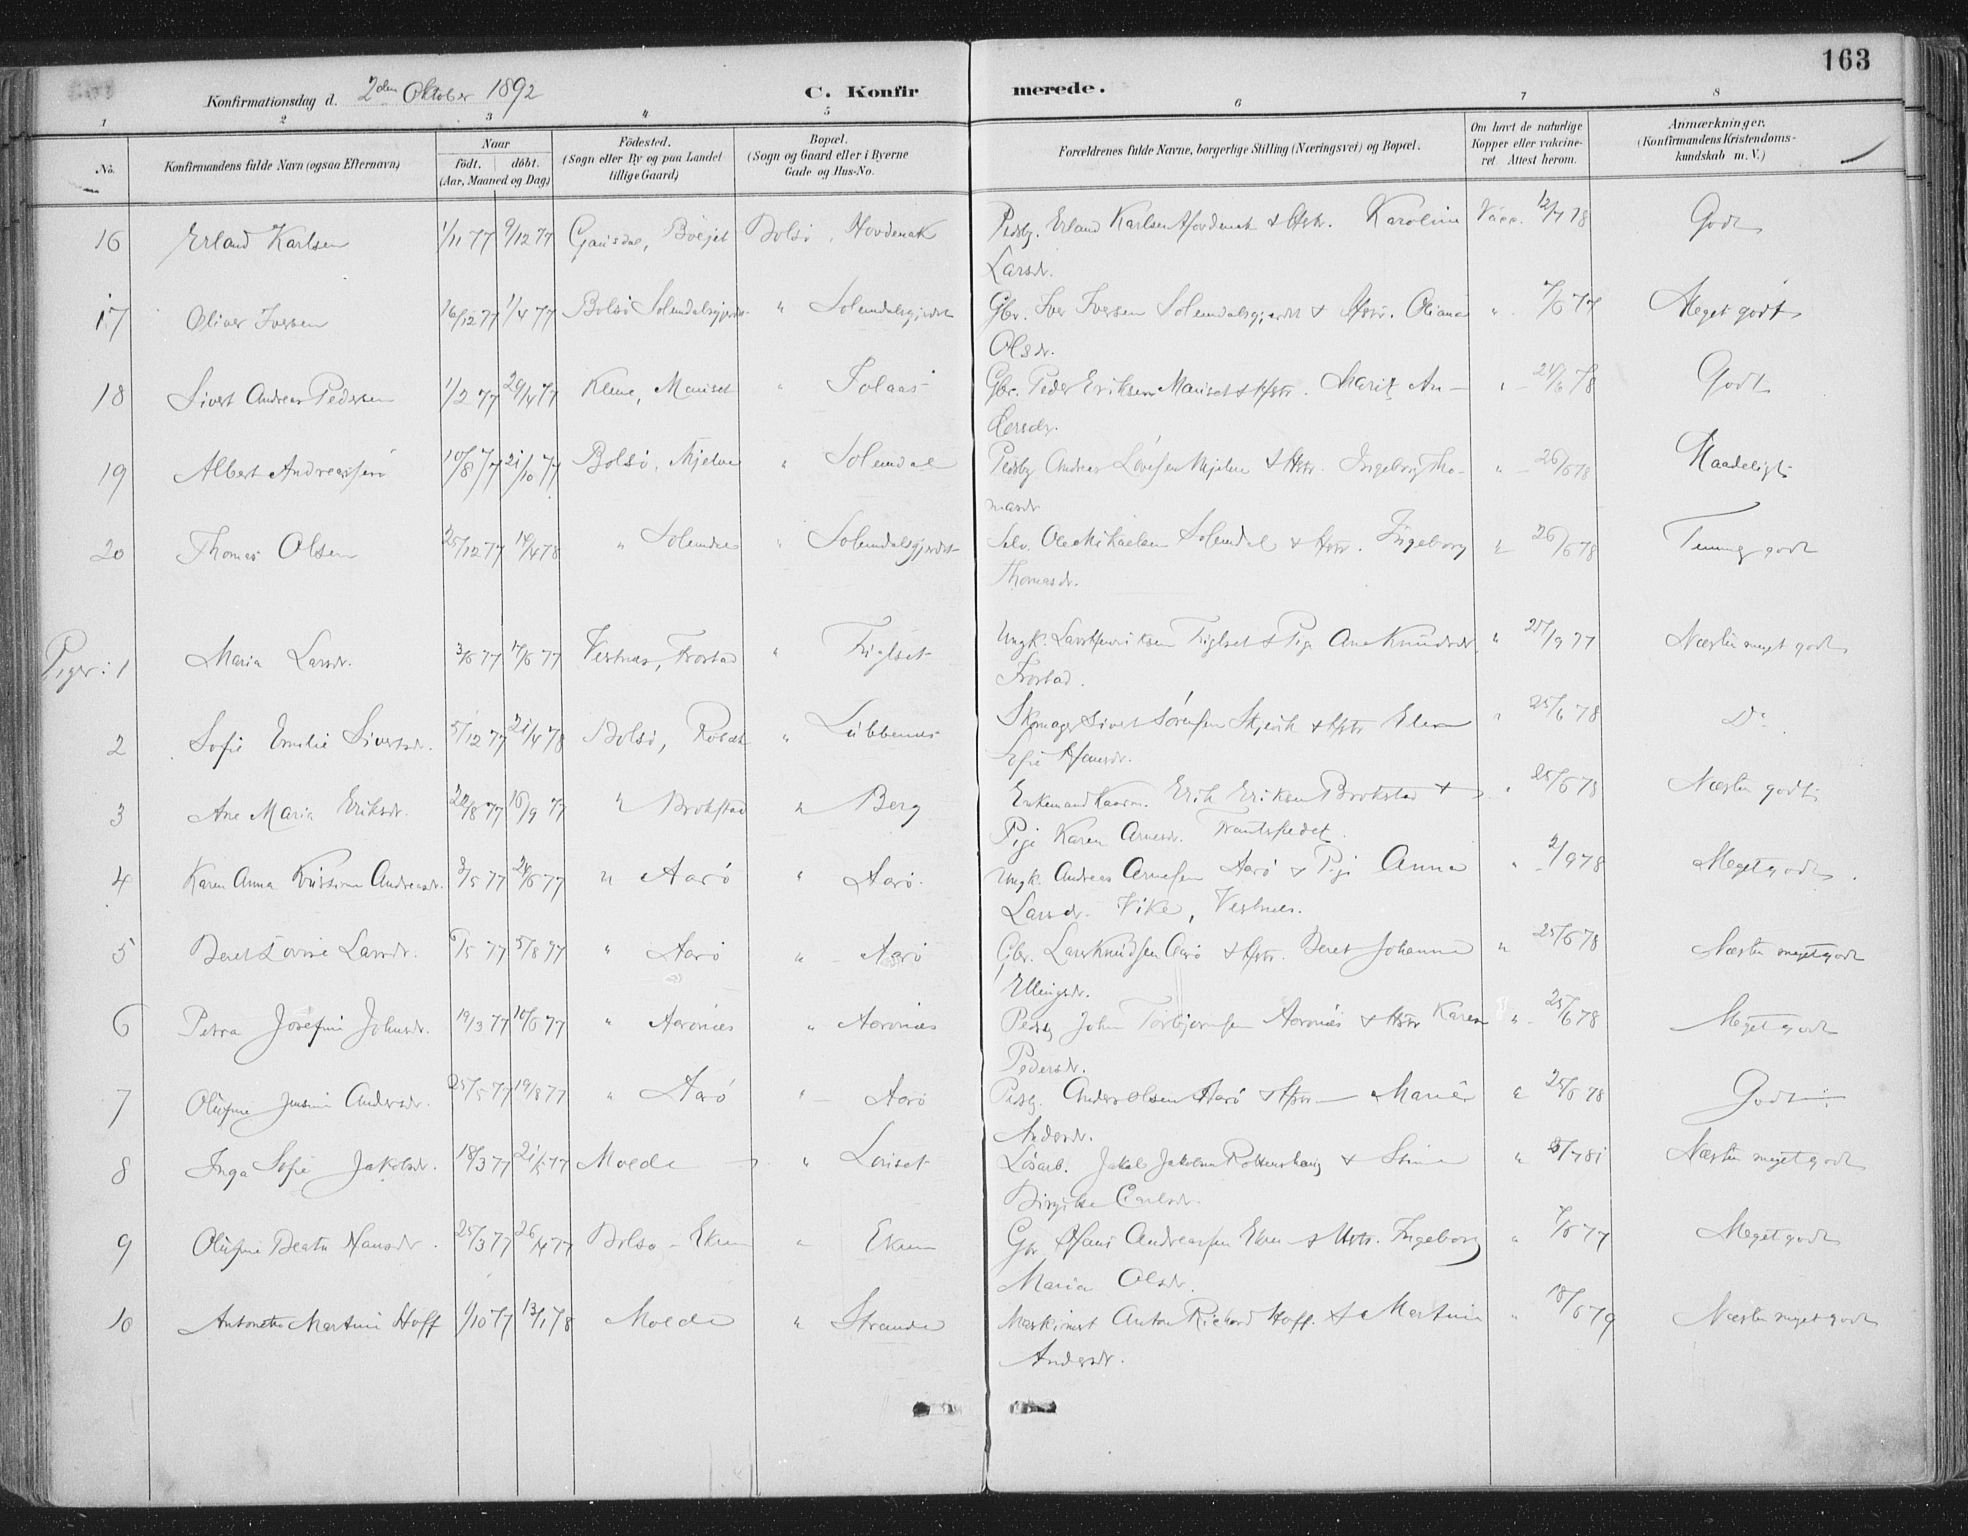 163
Konfirmationsdag d. 2den Oktober 1892 C. Konfirmerede.
1 2 3 4 5 6 7 8
No. Konfirmandens fulde Navn (ogsaa Efternavn) Naar født. døbt. (Aar, Maaned og Dag) Fødested. (Sogn eller By og paa Landet tillige Gaard) Bopæl. (Sogn og Gaard eller i Byerne Gade og Hus-No. Forældrenes fulde Navne, borgerlige Stilling (Næringsvei) og Bopæl. Om havt de naturlige Kopper eller vakcineret. Attest herom. Anmærkninger. (Konfirmandens Kristendomskundskab m. V.)
16 Erland Karlsen 1/11 77 9/12 77 Gausdal, Bolsø, Hovdenak Pedsbg. Erland Karlsen Hovdenak & Hstr. Karoline Vacc. 12/7 78 Godt
Larsdr.
17 Oliver Iversen 16/12 77 1/4 77 Bolsø Solemdalsgjerdet " Solemdalsgjerdet Gbr. Iver Iversen Solemdalsgjerdet & Hstr. Oliana " 7/6 77 Meget godt
Olsdr.
18 Sivert Andreas Pedersen 1/2 77 29/4 77 Kleve, " Solaas Gbr. Peder Eriksen & Hstr. Marit An- " 24/6 78 Godt
dersdr.
19 Albert Andreassen 10/8 77 21/10 77 Bolsø, Mjelve " Solemdal Pedsbg Andreas Mjelve & Hstr. Ingeborg Tho- " 26/6 78 Maadeligt
masdr
20 Thomas Olsen 25/12 77 14/4 78 " Solemdal " Solemdalsgjerdet Selv. Ole Mikaelsen Solemdal & Hstr. Ingeborg " 26/6 78 Temmg godt
Thomasdr.
Piger: 1 Maria Larsdr. 3/6 77 17/6 77 Vestnæs, Frostad " Friglset Ungk. Lars Henriksen Friglset & Pige Ane Knudsdr " 25/9 77 Næsten meget godt
Frostad.
2 Sofie Emilie Sivertsdr. 5/12 77 21/4 78 Bolsø, " Lübbenæs Skomager Sivert Sørensen Skjevik & Hstr Elen " 25/6 78 Do
Hansdr.
3 Ane Maria Eriksdr. 22/8 77 16/9 77 " Brokstad " Berg Enkemand Erik Eriksen Brokstad & " 25/6 78 Næsten godt
Pige Karen Arnesdr.
4 Karen Anna Kristine Andreasdr. 3/5 77 24/6 77 " Aarø " Aarø. Ungk. Andreas Arnesen Aarø & Pige Anna " 2/9 78 Meget godt.
Larsdr. Vike, Vestnæs.
5 Beret Lovise Larsdr. 6/5 77 5/8 77 " Aarø " Aarø Gbr. Lars Knudsen Aarø & Hstr. Beret Johanna " 25/6 78 Næsten meget godt
Ellingsdr.
6 Petra Josefine Johnsdr. 19/3 77 10/6 77 " Aarønæs " Aarønæs Pedsbg John Torbjørnsen Aarønæs & Hstr Karen " 25/6 78 Meget godt
Pedersdr.
7 Olufine Jensine Andersdr. 25/5 77 19/8 77 " Aarø " Aarø Pedsbg. Anders Olsen Aarø & Hstr. Marie " 25/6 78 Godt
Andersdr.
8 Inga Sofie Jakobsdr. 18/3 77 21/5 77 Molde " Loviset Løsarb. Jakob Jakobsen & Stina " 8/7 81 Næsten meget godt
Birgitha Carlsdr.
9 Olufine Beata Hansdr. 25/3 77 26/4 77 Bolsø - Ekren " Ekren Gbr Hans Andreassen Ekren & Hstr. Ingeborg " 7/6 77 Meget godt
Maria Olsdr.
10 Antonette Martine Hoff 1/10 77 13/1 78 Molde " Strande Maskinist Anton Richard Hoff. & Martine " 18/6 79 Næsten meget godt
Andersdr.